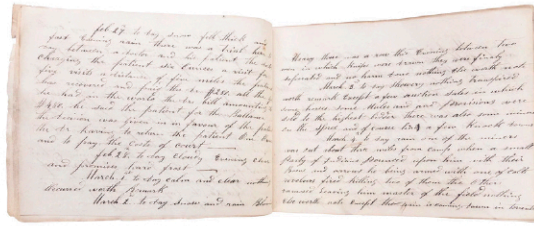 Feb 27 to day snow fell thick and
fast turning rain there was a trial here to
day between a doctor and his patient the doctor
charging the patient six Ounces a visit for
five visits a distance of five miles the patient
had recovered and paid the Dr $200 all the
he had in the world the bill amounting
$480 he sued the patient for the Ballance
the decision was given in favour of the patient
the Dr having to return the patient One
and to pay the Costs of court
Feb 28 to day cloudy Evening clear
and promises hard frost
March 1 to day calm and clear nothing
Occured worth Remark
March 2 to day Snow and rain
there was a row this Evening between two
men in which Knives were drawn they were finely
separated and no harm done nothing else worth note
March 3 to day Showery nothing transpired
worth remark Except a few auction sales in which
some horses Some Mules and provisions were
sold to the highest bidder there was also some
on the Spree and a few Knock downs
March 4 to day rain one of the miners
was out about three miles from camp when a small
party of Indians pounced upon him with their
Bows and arrows he being armed with one of colts
revolvers fired killing two of them the Other
runaway leaving him master of the field nothing
else worth note Except that rain is coming down in torrents